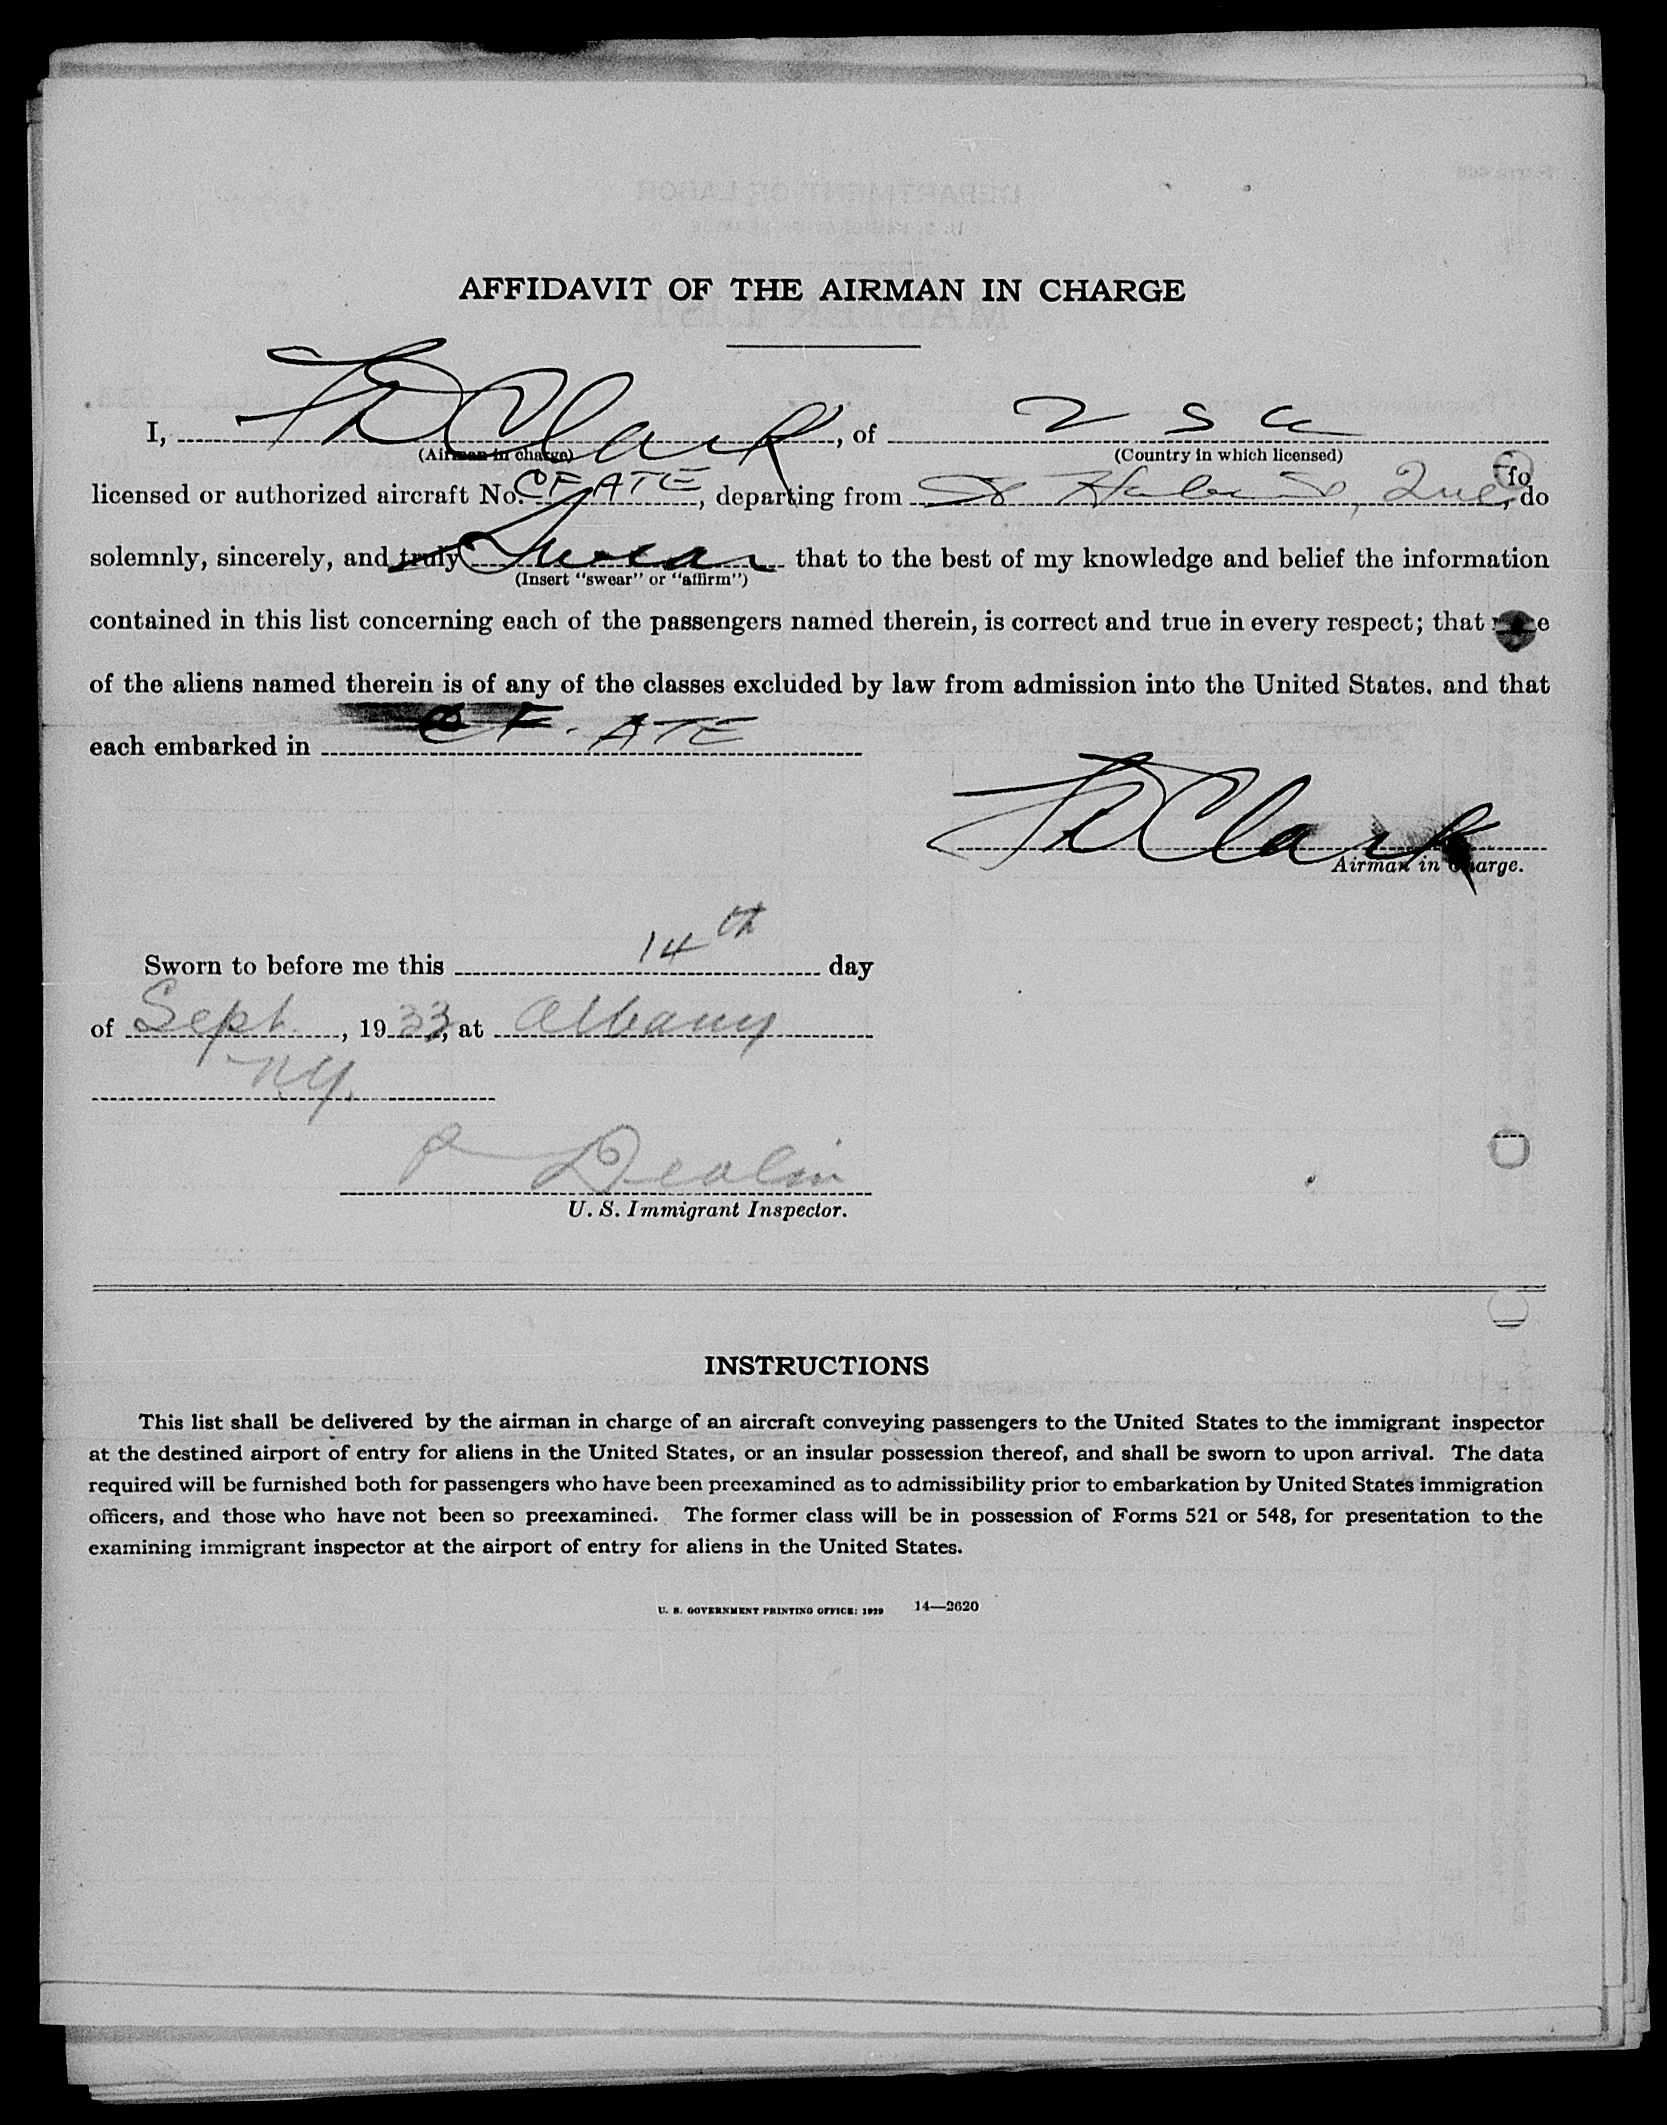 AFFIDAVIT OF THE AIRMAN IN CHARGE
I, F D Clark, of U S A
(Airman in charge) (Country in which licensed)
licensed or authorized aircraft No. CF ATE, departing from St Hubert, Que, do
solemnly, sincerely, and truly Swear that to the best of my knowledge and belief the information
(Insert "swear" or "affirm")
contained in this list concerning each of the passengers named therein, is correct and true in every respect; that none
of the aliens named therein is of any of the classes excluded by law from admission into the United States, and that
each embarked in CF-ATE
F D Clark
Airman in Charge.
Sworn to before me this 14th day
of Sept, 1933, at Albany
N.Y.
Devlin
U. S. Immigrant Inspector.
INSTRUCTIONS
This list shall be delivered by the airman in charge of an aircraft conveying passengers to the United States to the immigrant inspector
at the destined airport of entry for aliens in the United States, or an insular possession thereof, and shall be sworn to upon arrival. The data
required will be furnished both for passengers who have been preexamined as to admissibility prior to embarkation by United States immigration
officers, and those who have not been so preexamined. The former class will be in possession of Forms 521 or 548, for presentation to the
examining immigrant inspector at the airport of entry for aliens in the United States.
U. S. GOVERNMENT PRINTING OFFICE: 1929 14—2620